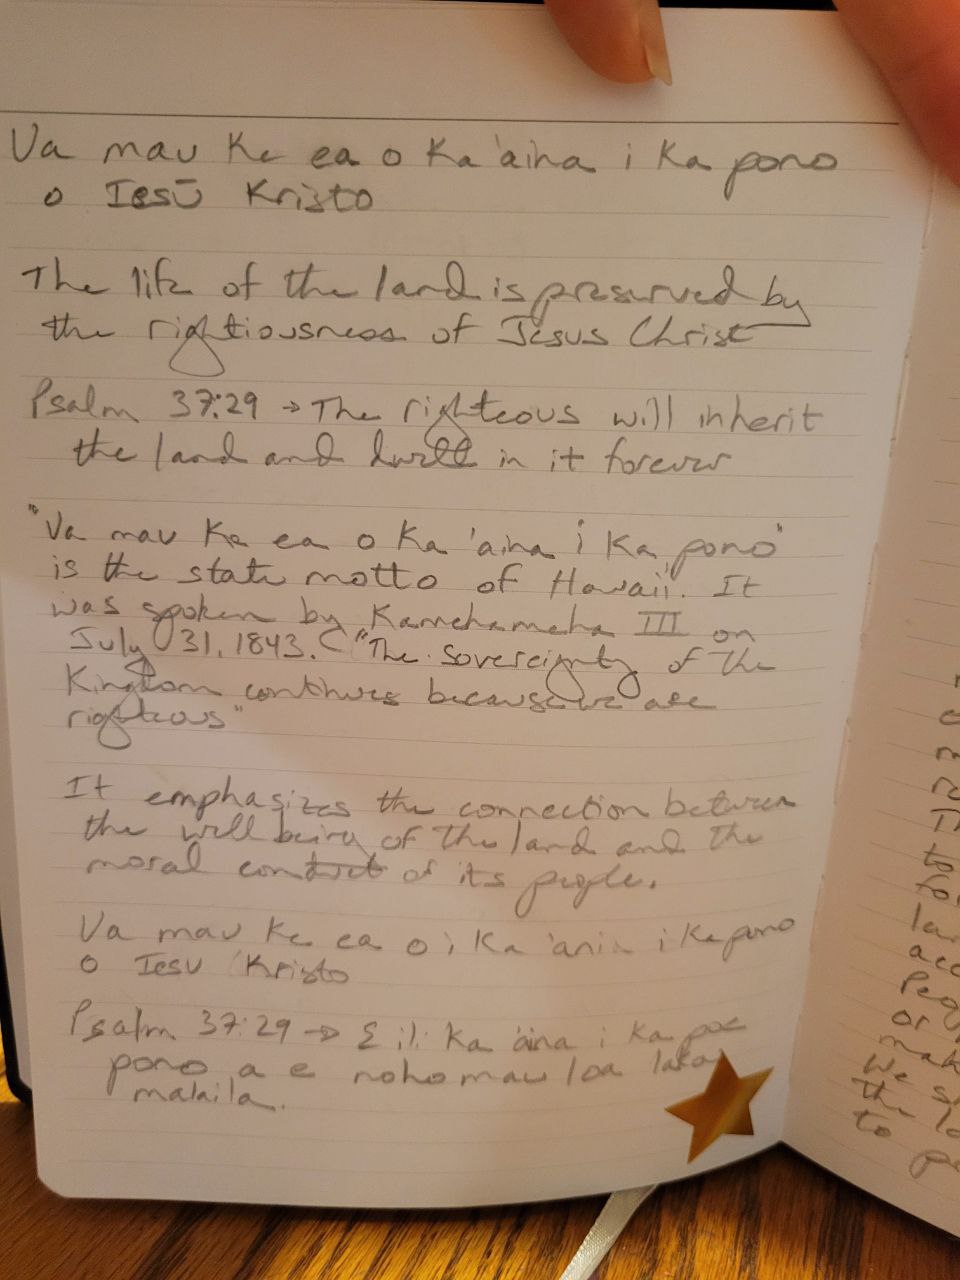 Ua mau ke ea o ka 'aina i ka pono
o Iesū Kristo
The life of the land is preserved by
the rightiousness of Jesus Christ
Psalm 37:29 → The righteous will inherit
the land and dwell in it forever
"Ua mau ke ea o ka 'aina i ka pono"
is the state motto of Hawaii. It
was spoken by Kamehameha III on
July 31, 1843. ("The sovereignty of the
Kingdom continues because we are
righteous"
It emphasizes the connection between
the well being of the land and the
moral conduct of its people.
Ua mau ke ea o i ka 'ania i ka pono
o Iesu Kristo
Psalm 37:29 → E ili ka 'aina i ka poe
pono a e noho mau loa lakou
malaila.